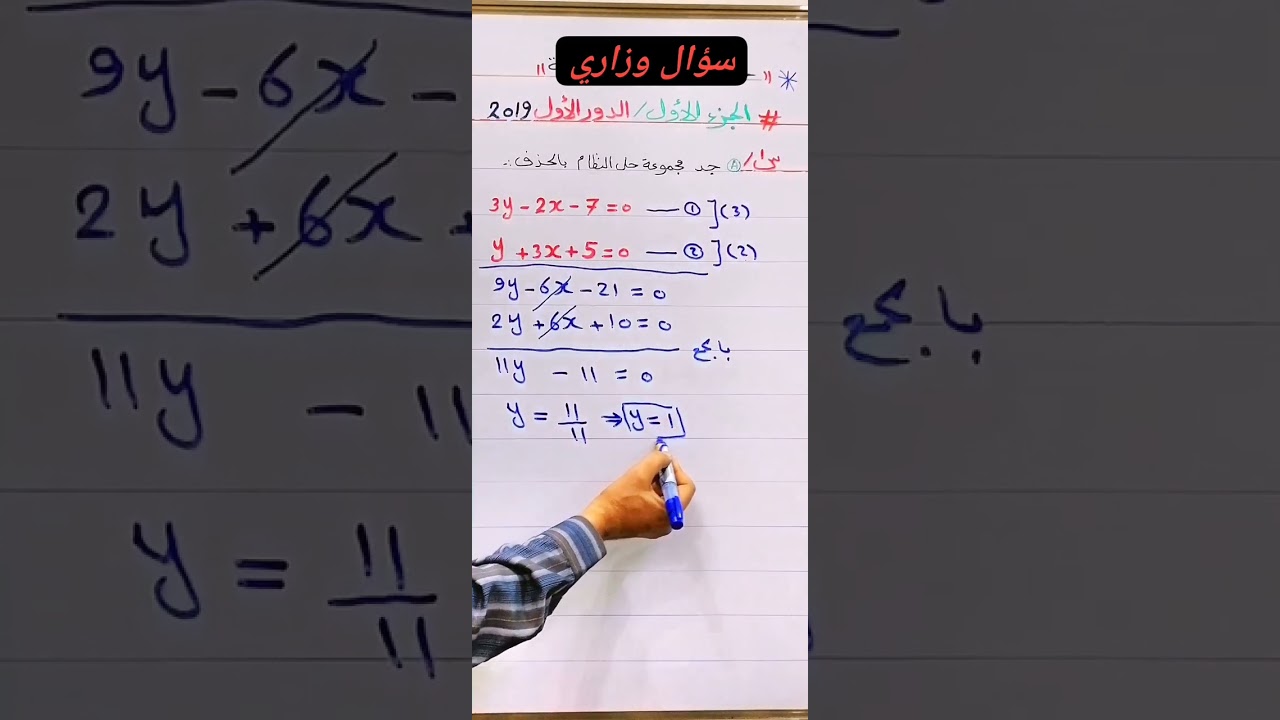 سؤال وزاري
# الجزء الأول / الدور الأول 2019
س١/ Ⓐ جد مجموعة حل النظام بالحذف :-
3y - 2x - 7 = 0 — ① ] (3)
y + 3x + 5 = 0 — ② ] (2)
9y - 6x - 21 = 0
2y + 6x + 10 = 0
بالجمع
11y - 11 = 0
y = 11/11 ⇒ y = 1